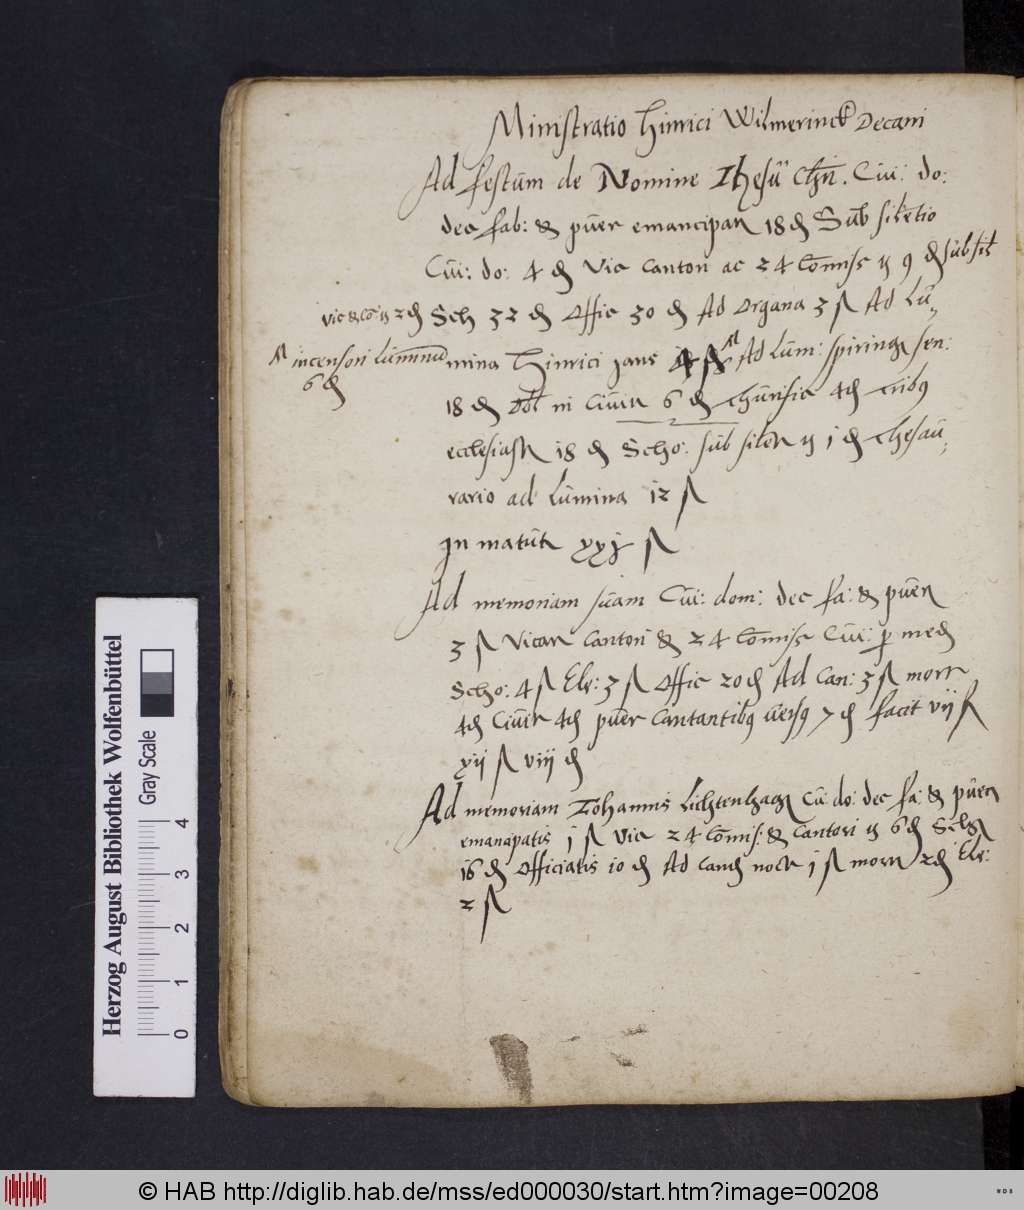 Ministratio Hinrici Wilmerinck Decani
Ad festum de Nomine Ihesu Chri. Cui: do:
dec fab: & puer emancipan 18 ₰ Sub silentio
Cui: do: 4 ₰ Vic Canton ac 24 Comiss ij 9 ₰ sub sil
Vic & Co: ij 2₰ Sch 32 ₰ Offic 30 ₰ Ad Organa 3 ß Ad Lu-
incensori luminum mina Hinrici Jans 4 ß Ad Lum: Spiringk sen:
6 ₰
18 ₰ in Civit 6 ₰ 4₰ 
ecclesiast 18 ₰ Scho: sub silen ij 1 ₰ thesau-
rario ad lumina 12 ß
In matut xxj ß
Ad memoriam suam Cui: dom: dec fa: & puer
3 ß Vicar Cantori & 24 Comiss Cui: p med
Scho: 4 ß Ele: 3 ß Offic 20 ₰ Ad Can: 3 ß morr
4₰ 4₰ puer Cantantibus versus 7 ₰ facit vij
xij ß viij ₰
Ad memoriam Johannis Lichtenhagen Cui: do: dec fa: & puer
emancipatis 1 ß Vic 24 Comiss: & Cantori ij 6 ₰ Schol
16 ₰ Officiatis 10 ₰ Ad Cand noct 1 ß morr 2₰ Ele:
2 ß
Herzog August Bibliothek Wolfenbüttel
Gray Scale
0 1 2 3 4
© HAB http://diglib.hab.de/mss/ed000030/start.htm?image=00208